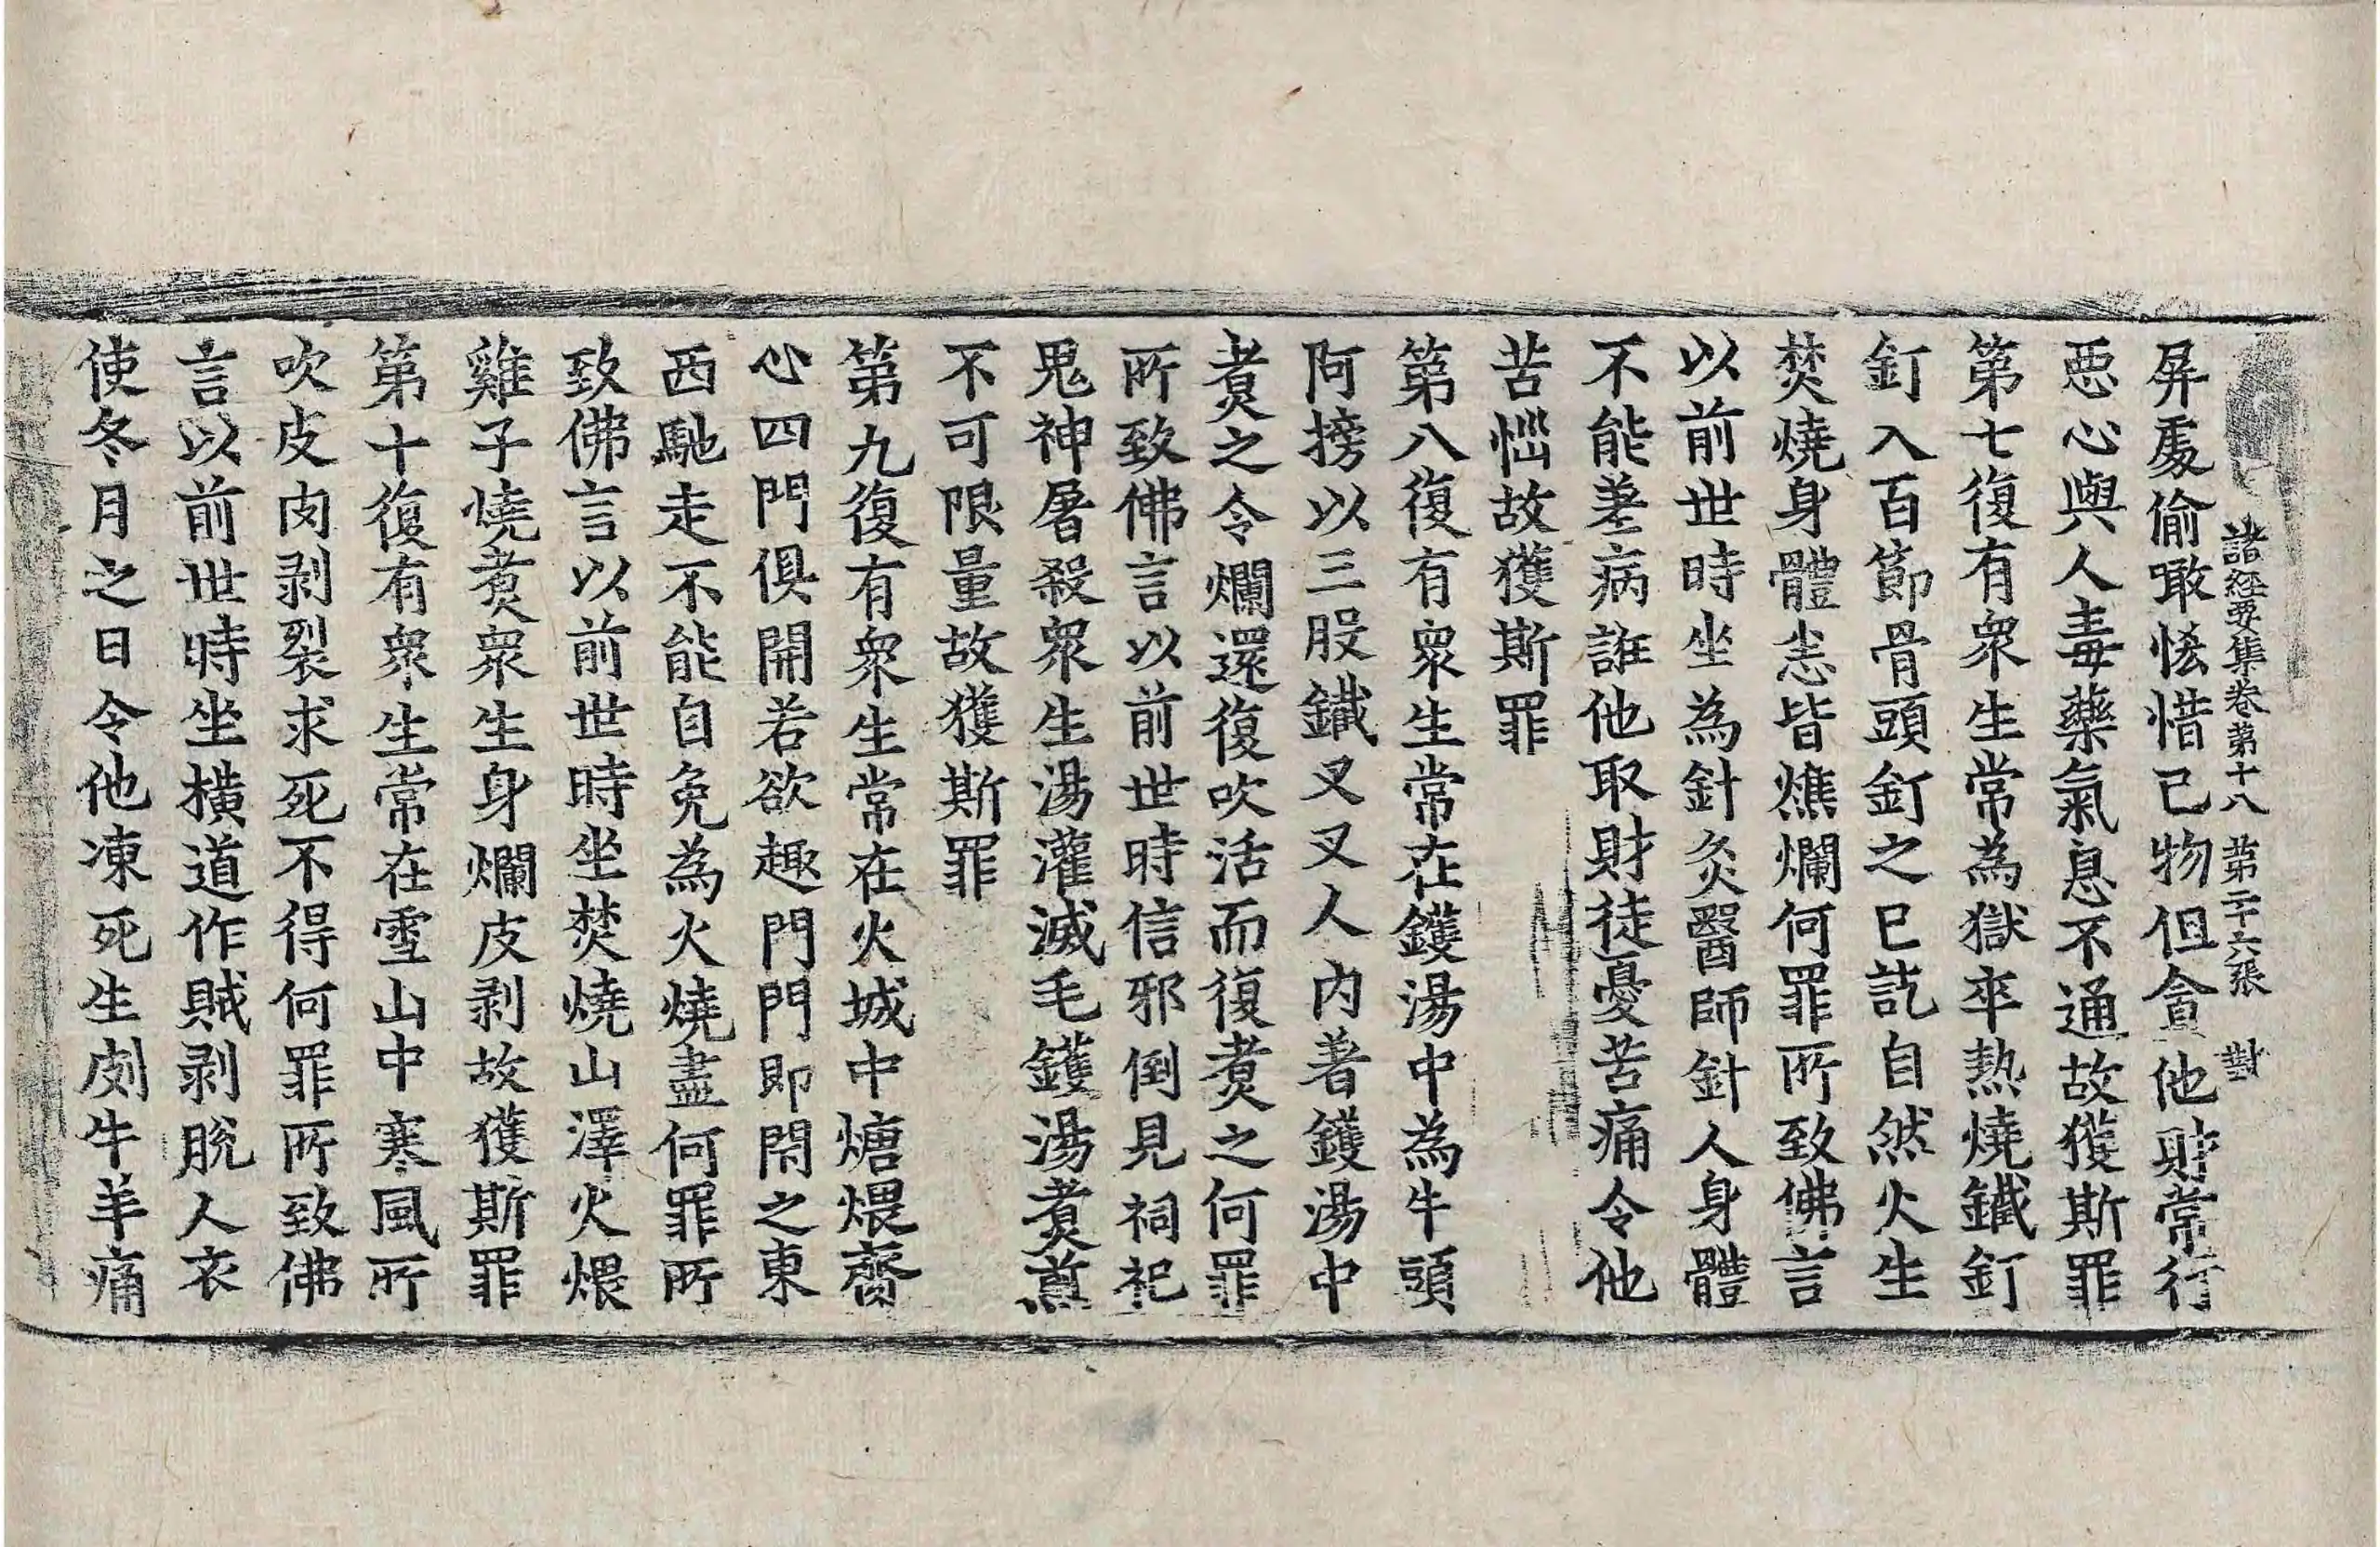 諸經要集卷第十八 第二十六張 對
屏處偷噉悋惜己物但貪他財常行
惡心與人毒藥氣息不通故獲斯罪
第七復有衆生常為獄卒熱燒鐵釘
釘入百節骨頭釘之已訖自然火生
焚燒身體悉皆燋爛何罪所致佛言
以前世時坐為針灸醫師針人身體
不能差病誑他取財徒憂苦痛令他
苦惱故獲斯罪
第八復有衆生常在鑊湯中為牛頭
阿搒以三股鐵叉叉人內著鑊湯中
煑之令爛還復吹活而復煑之何罪
所致佛言以前世時信邪倒見祠祀
鬼神屠殺衆生湯灌滅毛鑊湯煑煎
不可限量故獲斯罪
第九復有衆生常在火城中煻煨齊
心四門俱開若欲趣門門即閇之東
西馳走不能自免為火燒盡何罪所
致佛言以前世時坐焚燒山澤火煨
雞子燒煑衆生身爛皮剥故獲斯罪
第十復有衆生常在雪山中寒風所
吹皮肉剥裂求死不得何罪所致佛
言以前世時坐橫道作賊剥脫人衣
使冬月之日令他凍死生剥牛羊痛